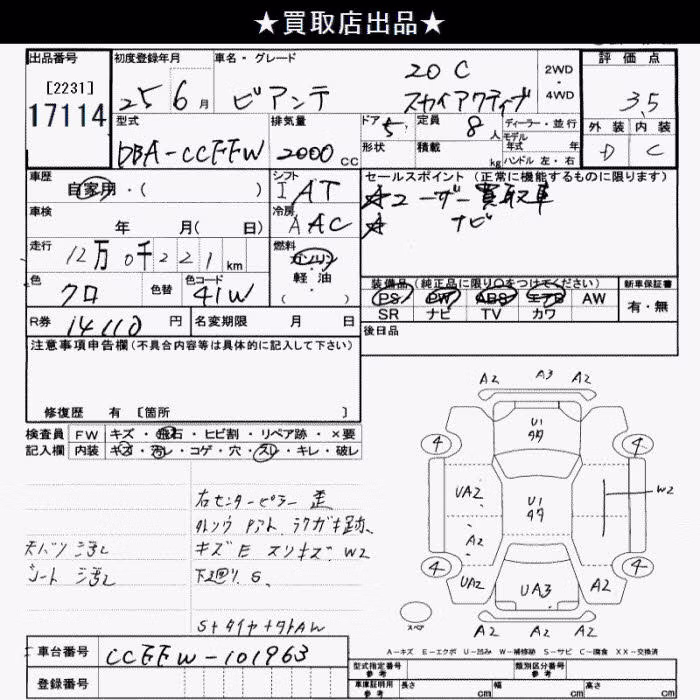 ★買取店出品★
出品番号 初度登録年月 車名・グレード 評価点
[2231] 17114
25 6月 ビアンテ 20C スカイアクティブ 2WD 4WD 3.5
型式 排気量 ドア 定員 ディーラー・並行 外装 内装
DBA-CCEFW 2000cc 5 8人 モデル 年式 年 D C
形状 積載 kg ハンドル 左・右
車歴 シフト セールスポイント (正常に機能するものに限ります)
自家用・( ) I AT ☆ユーザー買取車
車検 冷房 ☆ ナビ
年 月( 日) A AC
走行 燃料
12万0千221km ガソリン・軽油 ( )
色 色替 色コード 装備品 (純正品に限り○をつけてください) 新車保証書
クロ 41W PS PW ABS エアB AW 有・無
SR ナビ TV カワ
R券 14110円 名変期限 月 日 後日品
注意事項申告欄 (不具合内容等は具体的に記入して下さい)
修復歴 有 [箇所 ]
検査員 FW キズ・飛石・ヒビ割・リペア跡・×要
記入欄 内装 キズ・汚レ・コゲ・穴・スレ・キレ・破レ
A2 A3 A2
U1
4 4
UA2 U1 W2
A2
4 4
UA2 UA3 A2
A2 A2 A2
スペア
右センターピラー 歪
キズE スリキズ W2
天バリ 汚レ
シート 汚レ 下廻り S
A-キズ E-エクボ U-凹み W-補修跡 S-サビ C-腐食 XX-交換済
車台番号 CCEFW-101963
型式指定番号 参考 類別区分番号 参考
登録番号
車庫証明用 参考 長さ cm 幅 cm 高さ cm